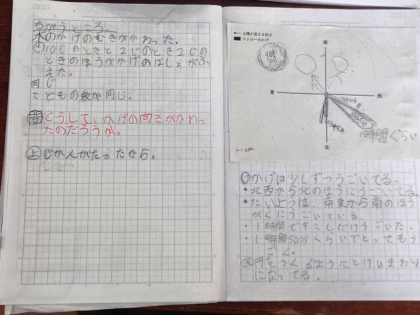 ちがうところ
木のかげのむきがかわった。
10じのときと2じのとき2じの
ときのほうがかげのばしょがふ
えた。
同じ
こどもの数が同じ。
どうして、かげの向きがかわっ
たのだろうか。
じかんがたったから。
北
1時間ぐらい
かげは少しずつうごいてる。
・北西から北のほうにうごいている。
・たいようは、南東から南のほう
がくにうごいている。
・1時間ですこしだけうごいた。
・1時間50分くらいで
円をつくるようにとけいまわり
になってる。